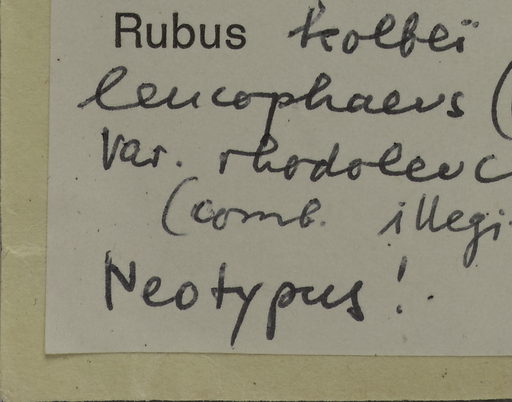 Rubus kolbeï
leucophaeus (
var. rhodoleuc
(comb. illegi
Neotypus!